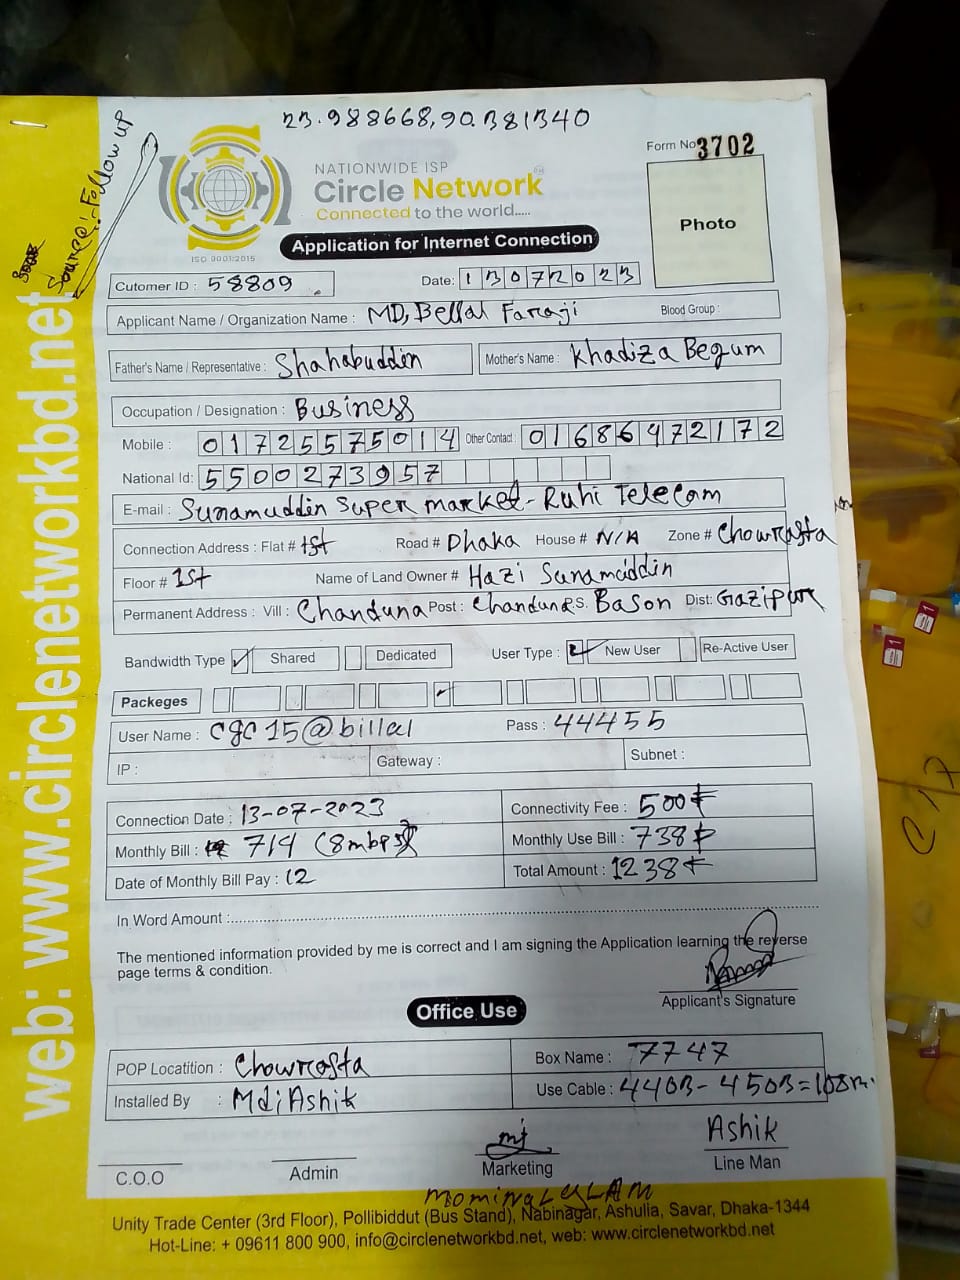 23.988668,90.381340
Source: Follow up
Form No 3702
NATIONWIDE ISP
Circle Network
Connected to the world.....
ISO 9001:2015
Photo
Application for Internet Connection
Cutomer ID : 58809
Date: 13072023
Applicant Name / Organization Name : MD, Bellal Faraji Blood Group :
Father's Name / Representative : Shahabuddin Mother's Name : Khadiza Begum
Occupation / Designation : Business
Mobile : 01725575014 Other Contact : 01686472172
National Id: 5500273957
E-mail : Sunamuddin Super market - Ruhi Telecom
Connection Address : Flat # 1st Road # Dhaka House # N/A Zone # Chowrasta
Floor # 1st Name of Land Owner # Hazi Sunamuddin
Permanent Address : Vill : Chanduna Post : Chanduna P.S. Bason Dist: Gazipur
Bandwidth Type Shared Dedicated User Type : New User Re-Active User
Packeges
User Name : cgc15@billal Pass : 44455
IP : Gateway : Subnet :
Connection Date : 13-07-2023 Connectivity Fee : 500
Monthly Bill : 714 (8mbps) Monthly Use Bill : 738
Date of Monthly Bill Pay : 12 Total Amount : 1238
In Word Amount :
The mentioned information provided by me is correct and I am signing the Application learning the reverse
page terms & condition.
Applicant's Signature
Office Use
POP Locatition : Chowrasta Box Name : 7747
Installed By : Md: Ashik Use Cable : 4403 - 4503 = 100m.
Ashik
C.O.O Admin Marketing Line Man
Unity Trade Center (3rd Floor), Pollibiddut (Bus Stand), Nabinagar, Ashulia, Savar, Dhaka-1344
Hot-Line: + 09611 800 900, info@circlenetworkbd.net, web: www.circlenetworkbd.net
web: www.circlenetworkbd.net